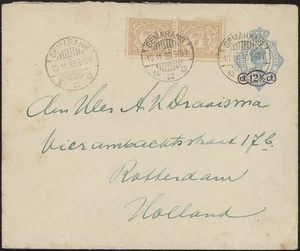 SEMARANG
SEMARANG
SEMARANG
ct 12½ ct
den Heer A. V. Draaisma
Vierambachtsstraat 17 C.
Rotterdam
Holland.